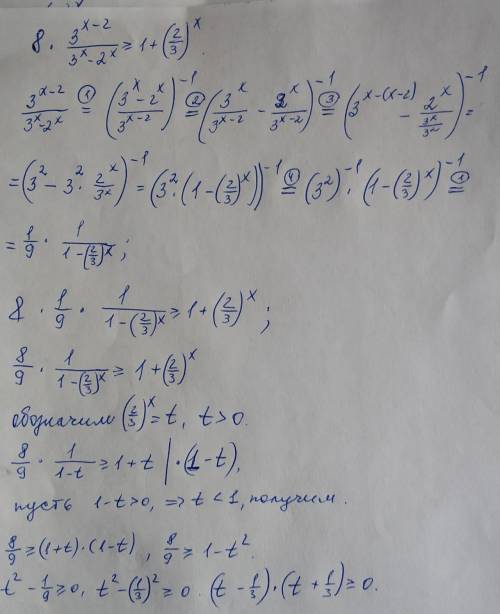 8 · 3^(x-2)/(3^x-2^x) ≥ 1+(2/3)^x.
3^(x-2)/(3^x-2^x) =① ((3^x-2^x)/3^(x-2))^(-1) =② (3^x/3^(x-2) - 2^x/3^(x-2))^(-1) =③ (3^(x-(x-2)) - 2^x/(3^x/3^2))^(-1) =
=(3^2-3^2·2^x/3^x)^(-1) = (3^2·(1-(2/3)^x))^(-1) =④ (3^2)^(-1)·(1-(2/3)^x)^(-1) =①
= 1/9 · 1/(1-(2/3)^x);
8 · 1/9 · 1/(1-(2/3)^x) ≥ 1+(2/3)^x;
8/9 · 1/(1-(2/3)^x) ≥ 1+(2/3)^x
обозначим (2/3)^x = t, t>0.
8/9 · 1/(1-t) ≥ 1+t |·(1-t),
пусть 1-t>0, => t<1, получим.
8/9 ≥ (1+t)·(1-t), 8/9 ≥ 1-t^2.
t^2-1/9 ≥ 0, t^2-(1/3)^2 ≥ 0. (t-1/3)·(t+1/3) ≥ 0.